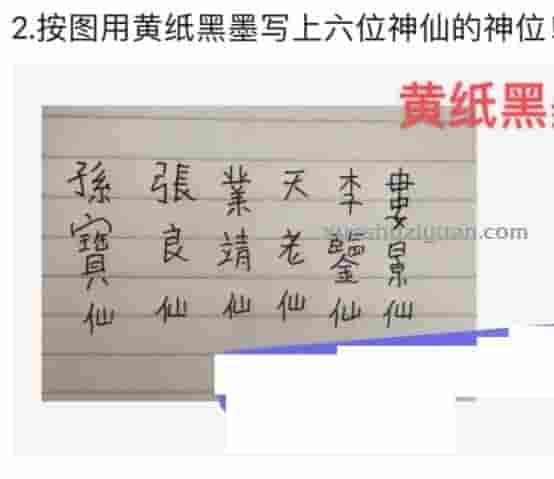 2.按图用黄纸黑墨写上六位神仙的神位!
黄纸黑
婁景仙
李鑒仙
天老仙
業靖仙
張良仙
孫寶仙
xueshuziyuan.com